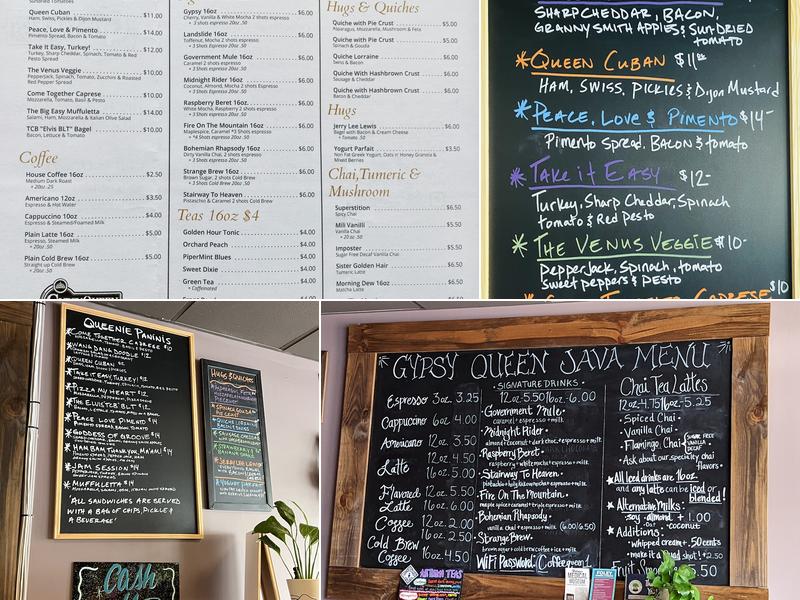 Queen Cuban $11.00
Ham, Swiss, Pickles & Dijon Mustard
Peace, Love & Pimento $14.00
Pimento Spread, Bacon & Tomato
Take It Easy, Turkey! $12.00
Turkey, Sharp Cheddar, Spinach, Tomato & Red
Pesto Spread
The Venus Veggie $10.00
Pepperjack, Spinach, Tomato, Zucchini & Roasted
Red Pepper Spread
Come Together Caprese $10.00
Mozzarella, Tomato, Basil & Pesto
The Big Easy Muffuletta $14.00
Salami, Ham, Mozzarella & Italian Olive Salad
TCB "Elvis BLT" Bagel $10.00
Bacon, Lettuce & Tomato
Coffee
House Coffee 16oz $2.50
Medium Dark Roast
+ 20oz .25
Americano 12oz $3.50
Espresso & Hot Water
Cappuccino 10oz $4.00
Espresso & Steamed/Foamed Milk
Plain Latte 16oz $5.00
Espresso, Steamed Milk
+ 20oz .50
Plain Cold Brew 16oz $5.00
Straight up Cold Brew
+ 20oz .50
Gypsy 16oz $6.00
Cherry, Vanilla & White Mocha 2 shots espresso
+ 3 shots espresso 20oz .50
Landslide 16oz $6.00
Toffeenut, Mocha 2 shots espresso
+ 3 Shots Espresso 20oz .50
Government Mule 16oz $6.00
Caramel 2 shots espresso
+ 3 Shots Espresso 20oz .50
Midnight Rider 16oz $6.00
Coconut, Almond, Mocha 2 Shots espresso
+ 3 Shots Espresso 20oz .50
Raspberry Beret 16oz. $6.00
White Mocha, Raspberry 2 shots espresso
+ 3 Shots Espresso 20oz .50
Fire On The Mountain 16oz $6.00
Maplespice, Caramel *3 Shots espresso
+ *4 Shots Espresso 20oz .50
Bohemian Rhapsody 16oz $6.00
Dirty Vanilla Chai, 2 shots espresso
+ 3 Shots Espresso 20oz .50
Strange Brew 16oz $6.00
Brown Sugar, 2 shots Cold Brew
+ 3 Shots Cold Brew 20oz .50
Stairway To Heaven $6.00
Pistachio & Caramel 2 shots Cold Brew
Teas 16oz $4
Golden Hour Tonic $4.00
Orchard Peach $4.00
PiperMint Blues $4.00
Sweet Dixie $4.00
Green Tea $4.00
+ Caffeinated
Hugs & Quiches
Quiche with Pie Crust $5.00
Asparagus, Mozzarella, Mushroom & Feta
Quiche with Pie Crust $5.00
Spinach & Gouda
Quiche Lorraine $6.00
Swiss & Bacon
Quiche With Hashbrown Crust $6.00
Sausage & Cheddar
Quiche with Hashbrown Crust $6.00
Bacon & Cheddar
Hugs
Jerry Lee Lewis $6.00
Bagel with Bacon & Cream Cheese
+ Tomato .50
Yogurt Parfait $3.50
Non Fat Greek Yogurt, Oats n' Honey Granola &
Mixed Berries
Chai,Tumeric &
Mushroom
Superstition $6.50
Spicy Chai
Mili Vanilli $5.50
Vanilla Chai
+ 20oz .50
Imposter $5.50
Sugar Free Decaf Vanilla Chai
Sister Golden Hair $6.50
Tumeric Latte
Morning Dew 16oz $6.50
Matcha Latte
SHARP CHEDDAR, BACON,
GRANNY SMITH APPLES & SUNDRIED
TOMATO
* QUEEN CUBAN $11
HAM, SWISS, PICKLES & Dijon Mustard
* PEACE, LOVE & PIMENTO $14-
Pimento Spread, BACON & tomato
* TAKE iT EASY $12-
Turkey, Sharp Cheddar, Spinach
tomato & Red pesto
* THE VENUS VEGGIE $10-
PepperJack, Spinach, tomato
Sweet peppers & PESTO
$10
QUEENIE PANINIS
COME TOGETHER CAPRESE $10
WANG DANG DOODLE $12
QUEEN CUBAN
TAKE IT EASY, TURKEY! $12
PIZZA MY HEART $12
THE ELVIS TCB BLT $12
PEACE LOVE PIMENTO $14
GODDESS OF GROOVE
HAM BAM THANK YOU MA'AM!
JAM SESSION $14
MUFFULETTA $14
ALL SANDWICHES ARE SERVED
WITH A BAG OF CHIPS, PICKLE &
A BEVERAGE!
HUGS & QUICHES
Cash
GYPSY QUEEN JAVA MENU
Espresso 3oz. 3.25
Cappuccino 6oz 4.00
Americano 12oz 3.50
Latte 12oz 4.50
16oz 5.00
Flavored 12oz 5.50
Latte 16oz 6.00
Coffee 12oz 2.00
16oz 2.50
Cold Brew
Coffee 16oz 4.50
• SIGNATURE DRINKS •
12oz-5.50 16oz-6.00
• Government Mule •
caramel + espresso + milk
• Midnight Rider •
almond + coconut + dark choc. + espresso + milk
• Raspberry Beret •
raspberry + white mocha + espresso + milk
• Stairway To Heaven •
• Fire On The Mountain •
maple spice + caramel + triple espresso + milk
• Bohemian Rhapsody •
vanilla chai + espresso + milk (6.00/6.50)
• Strange Brew •
brown sugar + cold brew coffee + ice + milk
WiFi Password: Coffeequeen1
Chai Tea Lattes
12oz-4.75 16oz-5.25
• Spiced Chai •
• Vanilla Chai •
• Flamingo Chai • SUGAR FREE VANILLA DECAF
Ask about our specialty chai
flavors •
★ All Iced drinks are 16oz
and any latte can be iced or
blended!
★ Alternative Milks:
• soy • almond + 1.00
• Oat • coconut
★ Additions:
• whipped cream + .50cents
• make it a quad shot! + 2.50
Fruit Smoothies 5.50
AUTUMN TEAS
MEDICAL
MUSEUM
FOLEY